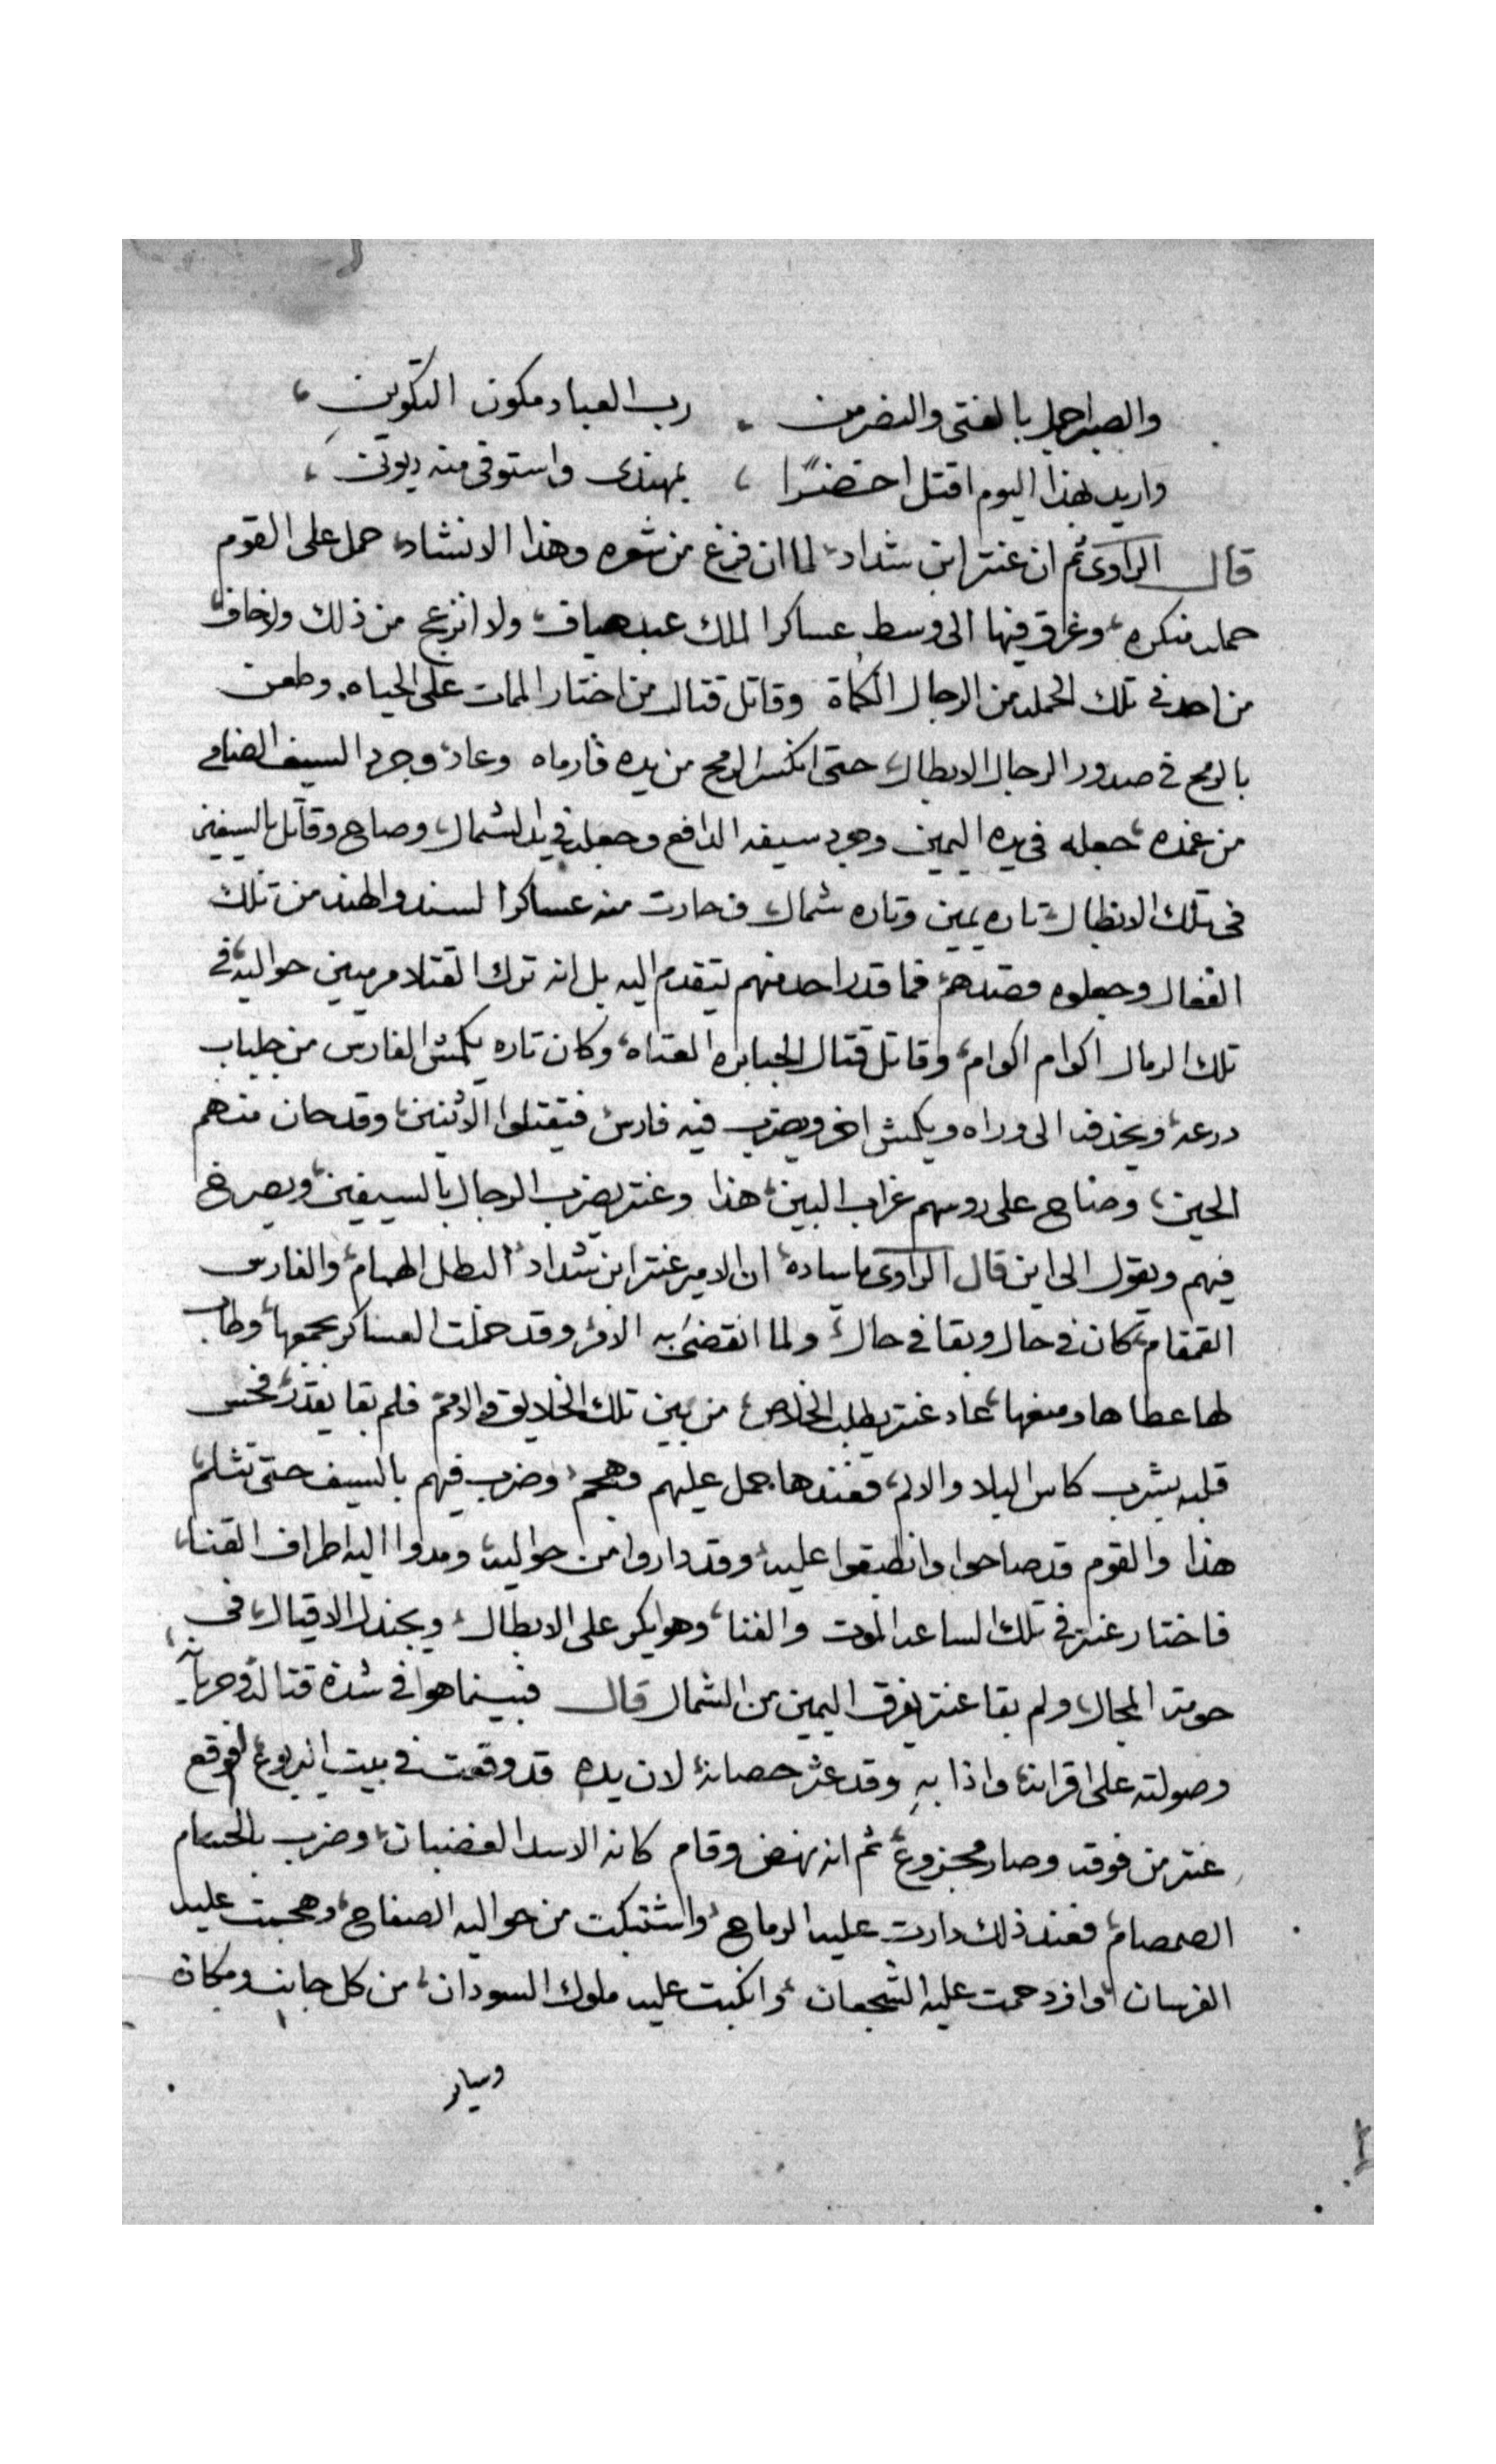 والصبر اجمل بالفتى والنصر من . رب العباد مكون التكوين ،
واريد بهذا اليوم اقتل اخضرًا ، بمهندى واستوفى منه ديونى ،
قال الراوى ثم ان عنتر ابن شداد لما ان فرغ من شعره وهذا الانشاد، حمل على القوم
حمله منكره، وغراق فيها الى وسط عساكر الملك عبد هياف، ولا انزعج من ذلك ولا خاف
من احد فى تلك الحمله من الرجال الكماة وقاتل قتال من اختار الممات على الحياه، وطعن
بالرمح فى صدور الرجال الابطال، حتى انكسر الرمح من يده فأرماه وعاد، وجرد السيف الضامى
من غمده، جعله فى يده اليمين وجرد سيفه الدافع وجعله فى يد الشمال، وصاح وقاتل بالسيفين
فى تلك الابطال، تاره يمين وتاره شمال، فحارت منه عساكر السند والهند من تلك
الفعال وجعلوه قصدهم، فما قدر احد منهم يتقدم اليه بل انه ترك القتلا مرميين حواليه، فى
تلك الرمال اكوام اكوام، وقاتل قتال الجبابره العتاه، وكان تاره يكمش الفارس من جلباب
درعه، ويحذفه الى وراه ويكمش اخر ويضرب فيه فارس، فيقتلوا الاثنين، وقد حان منهم
الحين، وصاح على روسهم غراب البين، هذا وعنتر يضرب الرجال بالسيفين، ويصرخ
فيهم ويقول الى اين قال الراوى ياساده، ان الامير عنتر ابن شداد البطل الهمام، والفارس
القمقام، كان فى حال وبقا فى حال، ولما انقضى به الامر، وقد حملت العساكر بجمعها، وطاب
لها عطاها ومنعها، عاد عنتر يطلب الخلاص، من بين تلك الخلايق والامم، فلم بقا يقدر، فحس
قلبه بشرب كاس البلا والالم، فعندها حمل عليهم وهجم، وضرب فيهم بالسيف حتى تثلم،
هذا والقوم قد صاحوا وانطبقوا عليه، وقد داروا من حواليه، ومدوا اليه اطراف القنا،
فاختار عنتر فى تلك الساعه الموت والفنا، وهو يكر على الابطال، ويجندل الاقيال، فى
حومة المجال، ولم بقا عنتر يفرق اليمين من الشمال قال فبينما هوا فى شدة قتاله وحربه،
وصولته على اقرانه، واذا به وقد عثر حصانه، لان يده قد وقعت فى بيت اليربوع، فوقع
عنتر من فوقه وصار مجزوع، ثم انه نهض وقام كانه الاسد الغضبان، وضرب بالحسام
الصمصام، فعند ذلك دارت عليه الرماح، واشتبكت من حواليه الصفاح، وهجمت عليه
الفرسان، وازدحمت عليه الشجعان، وانكبت عليه ملوك السودان، من كل جانب ومكان
وساير